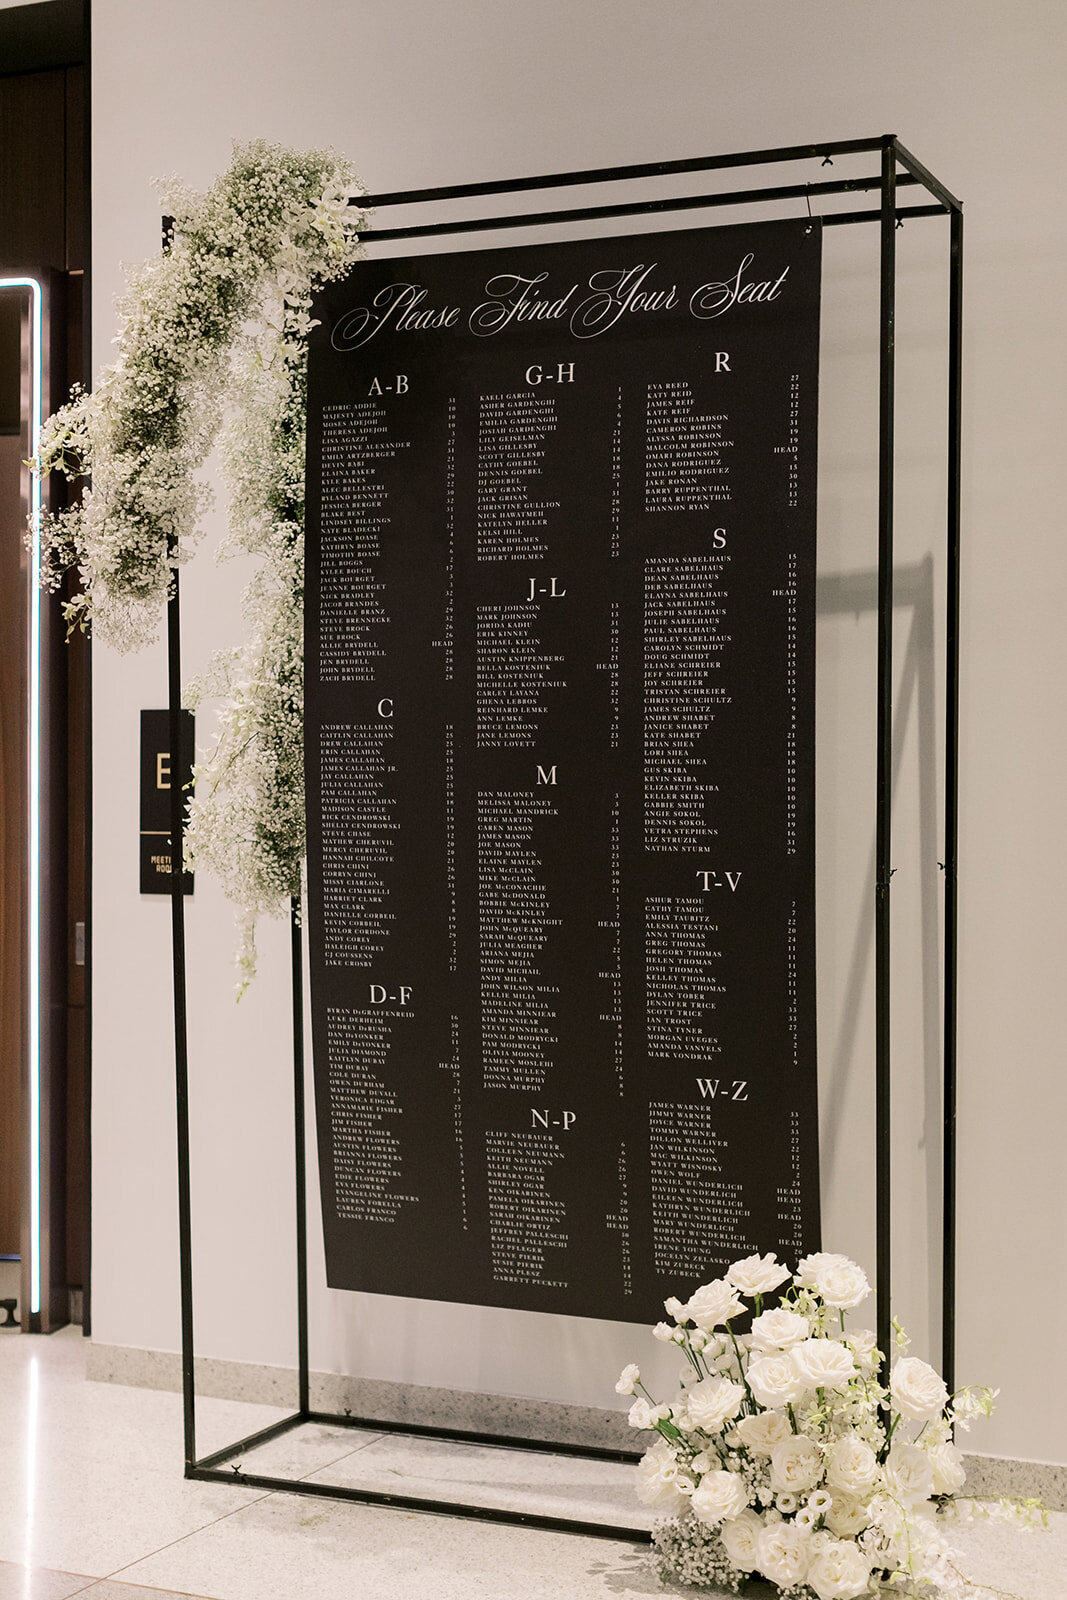 Please Find Your Seat
A-B
CEDRIC ADDIE 31
MAJESTY ADEJOH 10
MOSES ADEJOH 10
THERESA ADEJOH 10
LISA AGAZZI 3
CHRISTINE ALEXANDER 27
EMILY ARTZBERGER 31
DEVIN BABI 21
ELAINA BAKER 32
KYLE BAKES 29
ALEC BELLESTRI 22
RYLAND BENNETT 30
JESSICA BERGER 32
BLAKE BEST 31
LINDSEY BILLINGS 1
NATE BLADECKI 32
JACKSON BOASE 4
KATHRYN BOASE 6
TIMOTHY BOASE 6
JILL BOGGS 2
KYLEE BOUCH 17
JACK BOURGET 3
JEANNE BOURGET 3
NICK BRADLEY 32
JACOB BRANDES 2
DANIELLE BRANZ 29
STEVE BRENNECKE 32
STEVE BROCK 26
SUE BROCK 26
ALLIE BRYDELL HEAD
CASSIDY BRYDELL 28
JEN BRYDELL 28
JOHN BRYDELL 28
ZACH BRYDELL 28
C
ANDREW CALLAHAN 18
CAITLIN CALLAHAN 25
DREW CALLAHAN 25
ERIN CALLAHAN 25
JAMES CALLAHAN 18
JAMES CALLAHAN JR. 25
JAY CALLAHAN 25
JULIA CALLAHAN 25
PAM CALLAHAN 18
PATRICIA CALLAHAN 18
MADISON CASTLE 11
RICK CENDROWSKI 19
SHELLY CENDROWSKI 19
STEVE CHASE 12
MATHEW CHERUVIL 20
MERCY CHERUVIL 20
HANNAH CHILCOTE 21
CHRIS CHINI 26
CORRYN CHINI 26
MISSY CIARLONE 31
MARIA CIMARELLI 9
HARRIET CLARK 8
MAX CLARK 8
DANIELLE CORBEIL 29
KEVIN CORBEIL 19
TAYLOR CORDONE 29
ANDY COREY 2
HALEIGH COREY 2
CJ COUSSENS 32
JAKE CROSBY 17
D-F
BYRAN DeGRAFFENREID 16
LUKE DERHEIM 30
AUDREY DeRUSHA 24
DAN DeYONKER 11
EMILY DeYONKER 7
JULIA DIAMOND 24
KAITLYN DUBAY HEAD
TIM DUBAY 28
COLE DURAN 7
OWEN DURHAM 21
MATTHEW DUVALL 3
VERONICA EDGAR 27
ANNAMARIE FISHER 17
CHRIS FISHER 17
JIM FISHER 16
MARTHA FISHER 16
ANDREW FLOWERS 5
AUSTIN FLOWERS 5
BRIANNA FLOWERS 5
DAISY FLOWERS 4
DUNCAN FLOWERS 4
EDIE FLOWERS 4
EVA FLOWERS 4
EVANGELINE FLOWERS 5
LAUREN FORELLA 1
CARLOS FRANCO 6
TESSIE FRANCO 6
G-H
KAELI GARCIA 1
ASHER GARDENGHI 4
DAVID GARDENGHI 5
EMILIA GARDENGHI 6
JOSIAH GARDENGHI 4
LILY GEISELMAN 21
LISA GILLESBY 14
SCOTT GILLESBY 14
CATHY GOEBEL 18
DENNIS GOEBEL 18
DJ GOEBEL 25
GARY GRANT 1
JACK GRISAN 31
CHRISTINE GULLION 28
NICK HAWATMEH 29
KATELYN HELLER 11
KELSI HILL 1
KAREN HOLMES 23
RICHARD HOLMES 23
ROBERT HOLMES 23
J-L
CHERI JOHNSON 13
MARK JOHNSON 13
JORIDA KADIU 31
ERIK KINNEY 30
MICHAEL KLEIN 12
SHARON KLEIN 12
AUSTIN KNIPPENBERG 21
BELLA KOSTENIUK HEAD
BILL KOSTENIUK 28
MICHELLE KOSTENIUK 28
CARLEY LAYANA 22
GHENA LEBBOS 32
REINHARD LEMKE 9
ANN LEMKE 9
BRUCE LEMONS 23
JANE LEMONS 23
JANNY LOVETT 21
M
DAN MALONEY 3
MELISSA MALONEY 3
MICHAEL MANDRICK 10
GREG MARTIN 1
CAREN MASON 33
JAMES MASON 33
JOE MASON 33
DAVID MAYLEN 23
ELAINE MAYLEN 23
LISA McCLAIN 30
MIKE McCLAIN 30
JOE McCONACHIE 21
GABE McDONALD 1
BOBBIE McKINLEY 7
DAVID McKINLEY 7
MATTHEW McKNIGHT HEAD
JOHN McQUEARY 7
SARAH McQUEARY 7
JULIA MEAGHER 22
ARIANA MEJIA 5
SIMON MEJIA 5
DAVID MICHAIL HEAD
ANDY MILIA 13
JOHN WILSON MILIA 13
KELLIE MILIA 13
MADELINE MILIA 13
AMANDA MINNIEAR HEAD
KIM MINNIEAR 8
STEVE MINNIEAR 8
DONALD MODRYCKI 14
PAM MODRYCKI 14
OLIVIA MOONEY 27
RAMEEN MOSLEHI 24
TAMMY MULLEN 6
DONNA MURPHY 8
JASON MURPHY 8
N-P
CLIFF NEUBAUER 6
MARVIE NEUBAUER 6
COLLEEN NEUMANN 26
KEITH NEUMANN 26
ALLIE NOVELL 27
BARBARA OGAR 9
SHIRLEY OGAR 9
KEN OIKARINEN 20
PAMELA OIKARINEN 20
ROBERT OIKARINEN HEAD
SARAH OIKARINEN HEAD
CHARLIE ORTIZ 30
JEFFREY PALLESCHI 26
RACHEL PALLESCHI 26
LIZ PFLEGER 23
STEVE PIERIK 14
SUSIE PIERIK 14
ANNA PLESZ 22
GARRETT PUCKETT 29
R
EVA REED 27
KATY REID 22
JAMES REIF 12
KATE REIF 12
DAVIS RICHARDSON 27
CAMERON ROBINS 31
ALYSSA ROBINSON 19
MALCOLM ROBINSON 19
OMARI ROBINSON HEAD
DANA RODRIGUEZ 5
EMILIO RODRIGUEZ 15
JAKE RONAN 30
BARRY RUPPENTHAL 13
LAURA RUPPENTHAL 13
SHANNON RYAN 22
S
AMANDA SABELHAUS 15
CLARE SABELHAUS 17
DEAN SABELHAUS 16
DEB SABELHAUS 16
ELAYNA SABELHAUS HEAD
JACK SABELHAUS 17
JOSEPH SABELHAUS 15
JULIE SABELHAUS 16
PAUL SABELHAUS 16
SHIRLEY SABELHAUS 15
CAROLYN SCHMIDT 14
DOUG SCHMIDT 14
ELIANE SCHREIER 15
JEFF SCHREIER 15
JOY SCHREIER 15
TRISTAN SCHREIER 15
CHRISTINE SCHULTZ 9
JAMES SCHULTZ 9
ANDREW SHABET 8
JANICE SHABET 8
KATE SHABET 21
BRIAN SHEA 18
LORI SHEA 18
MICHAEL SHEA 18
GUS SKIBA 10
KEVIN SKIBA 10
ELIZABETH SKIBA 10
KELLER SKIBA 10
GABBIE SMITH 10
ANGIE SOKOL 19
DENNIS SOKOL 19
VETRA STEPHENS 16
LIZ STRUZIK 31
NATHAN STURM 29
T-V
ASHUR TAMOU 7
CATHY TAMOU 7
EMILY TAUBITZ 22
ALESSIA TESTANI 20
ANNA THOMAS 24
GREG THOMAS 11
GREGORY THOMAS 11
HELEN THOMAS 11
JOSH THOMAS 24
KELLEY THOMAS 11
NICHOLAS THOMAS 11
DYLAN TOBER 2
JENNIFER TRICE 33
SCOTT TRICE 33
IAN TROST 27
STINA TYNER 2
MORGAN UVEGES 2
AMANDA VANVELS 1
MARK VONDRAK 9
W-Z
JAMES WARNER 33
JIMMY WARNER 33
JOYCE WARNER 33
TOMMY WARNER 27
DILLON WELLIVER 22
JAN WILKINSON 12
MAC WILKINSON 12
WYATT WISNOSKY 2
OWEN WOLF 24
DANIEL WUNDERLICH HEAD
DAVID WUNDERLICH HEAD
EILEEN WUNDERLICH 23
KATHRYN WUNDERLICH HEAD
KEITH WUNDERLICH 20
MARY WUNDERLICH 20
ROBERT WUNDERLICH HEAD
SAMANTHA WUNDERLICH 20
IRENE YOUNG
JOCELYN ZELASKO
KIM ZUBECK
TY ZUBECK
E
MEETI
ROO